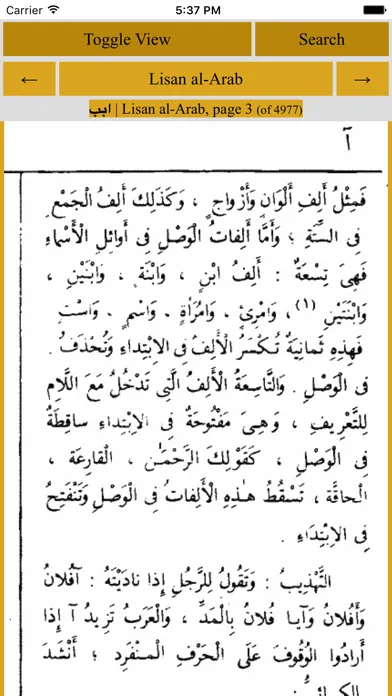 Carrier 5:37 PM
Toggle View Search
← Lisan al-Arab →
ابب | Lisan al-Arab, page 3 (of 4977)
آ
فَمِثْلُ أَلِفِ أَلْوَانٍ وَأَزْواجٍ ، وَكَذَلِكَ أَلِفُ الْجَمْعِ
فِى السِّتَّةِ ؛ وَأَمَّا أَلِفاتُ الْوَصْلِ فِى أَوائِلِ الْأَسْماءِ
فَهِىَ تِسْعَةٌ : أَلِفُ ابْنٍ ، وَابْنَةٍ ، وَابْنَيْنِ ،
وَابْنَتَيْنِ (١) ، وَامْرِئٍ ، وَامْرَأَةٍ ، وَاسْمٍ ، وَاسْتٍ
فَهذِهِ ثَمانِيَةٌ تُكْسَرُ الْأَلِفُ فِى الاِبْتِداءِ وَتُحْذَفُ .
فِى الْوَصْلِ . وَالتَّاسِعَةُ الْأَلِفُ الَّتِى تَدْخُلُ مَعَ اللَّامِ
لِلتَّعْرِيفِ ، وَهِىَ مَفْتُوحَةٌ فِى الاِبْتِداءِ ساقِطَةٌ
فِى الْوَصْلِ ، كَقَوْلِكَ الرَّحْمٰن ، الْقارِعَة ،
الْحاقَّة ، تَسْقُطُ هٰذِهِ الْأَلِفاتُ فِى الْوَصْلِ وَتَنْفَتِحُ
فِى الاِبْتِداءِ .
التَّهْذِيبُ : وَتَقُولُ لِلرَّجُلِ إِذا نادَيْتَهُ : آفُلانُ
وَأَفُلانُ وَآيا فُلانُ بِالْمَدِّ ، وَالْعَرَبُ تَزِيدُ آ إِذا
أَرادُوا الْوُقُوفَ عَلَى الْحَرْفِ الْمُنْفَرِد ؛ أَنْشَدَ
الْكِسائِىُّ :